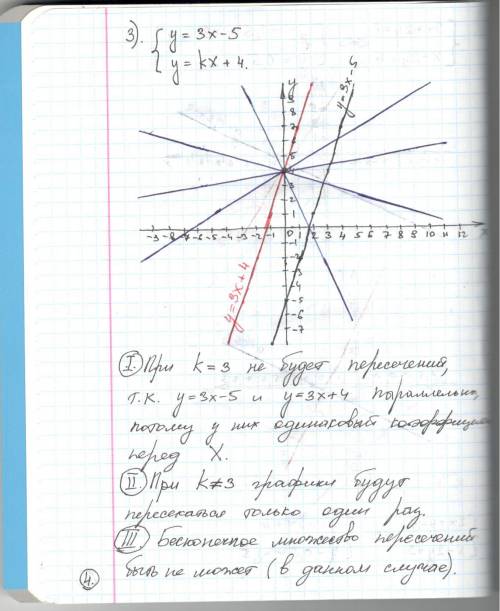 3). { y = 3x - 5
y = kx + 4.
y
y = 3x - 5
9
8
7
5
4
3
2
1
-9 -8 -7 -6 -5 -4 -3 -2 -1 0 1 2 3 4 5 6 7 8 9 10 11 12 x
-1
-2
-4
-5
-6
-7
y = 3x + 4
I. При k = 3 не будет пересечений,
т.к. y = 3x - 5 и y = 3x + 4 параллельны,
потому у них одинаковый коэффициент
перед X.
II. При k ≠ 3 графики будут
пересекаться только один раз.
III. Бесконечное множество пересечений
быть не может (в данном случае).
4.